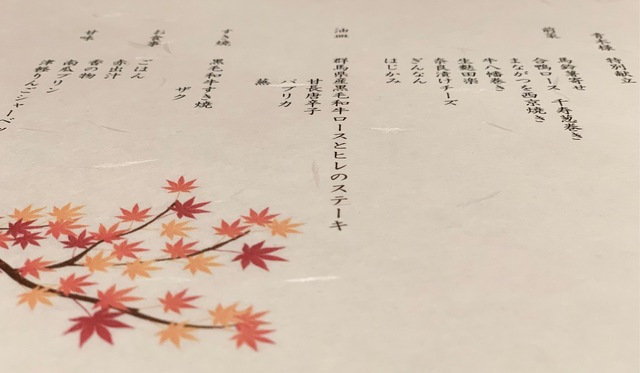 青木様 特別献立
前菜 馬鈴薯寄せ 千寿葱巻き
合鴨ロース
まながつを西京焼き
牛八幡巻き
生麩田楽
奈良漬けチーズ
ぎんなん
はじかみ
群馬県産黒毛和牛ロースとヒレのステーキ
甘長唐辛子
パプリカ
蕪
すき焼 黒毛和牛すき焼
ザク
お食事 ごはん
赤出汁
香の物
甘味 南瓜プリン
津軽りんごシャーベッ